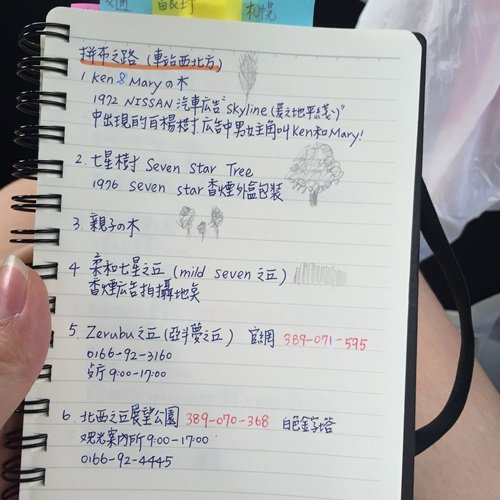 札幌
拼布之路 (車站西北方)
1 Ken & Maryの木
1972 NISSAN 汽車廣告"Skyline (愛之地平綫)"
中出現的白楊樹 廣告中男女主角叫Ken和Mary!
2. 七星樹 Seven Star Tree
1976 Seven star 香煙外盒包裝
3. 親子の木
4 柔和七星之丘 (mild seven 之丘)
香煙廣告拍攝地矣
5. Zerubu之丘 (亞斗夢之丘) 官網 389-071-595
0166-92-3160
9:00-17:00
6. 北西之丘展望公園 389-070-368 白色金字塔
观光案内所 9:00-17:00
0166-92-4445